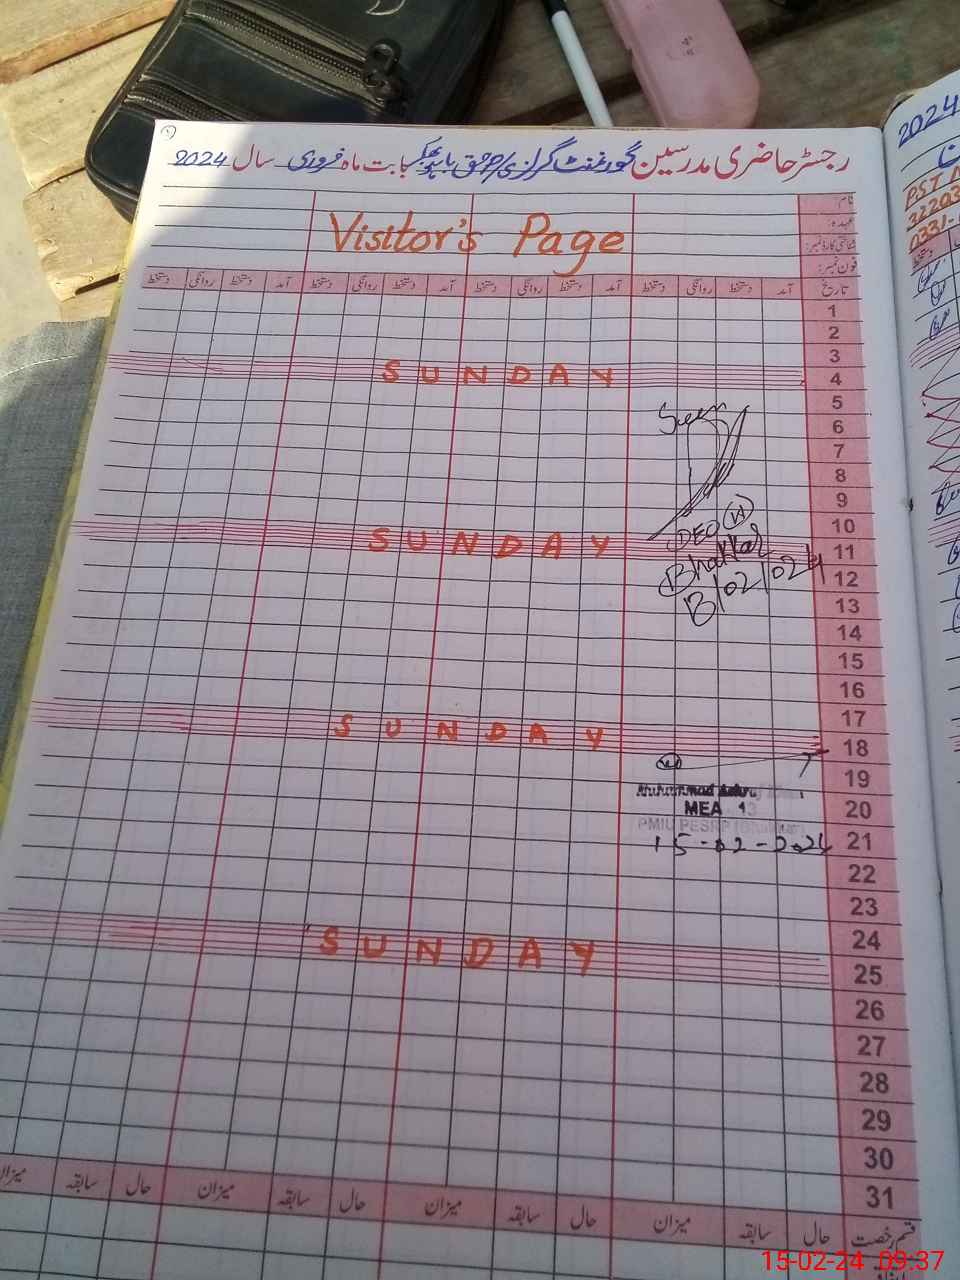 رجسٹر حاضری مدرسین گورنمنٹ گرلز بابت ماہ فروری سال 2024
نام:
عہدہ:
شناختی کارڈ نمبر:
فون نمبر:
Visitor's Page
تاریخ آمد دستخط روانگی دستخط آمد دستخط روانگی دستخط آمد دستخط روانگی دستخط آمد دستخط روانگی دستخط
1
2
3
4 SUNDAY
5
6 Seen
7
8
9
10 DEO (W)
11 SUNDAY Bhakkar
12 13/02/024
13
14
15
16
17
18 SUNDAY
19
20 Muhammad
MEA 13
21 PMIU PESRP (Bhakkar)
15-02-2024
22
23
24
25 SUNDAY
26
27
28
29
30
31
قسم رخصت حال سابقہ میزان حال سابقہ میزان حال سابقہ میزان حال سابقہ میزان
2024
PST
0331-
15-02-24 09:37